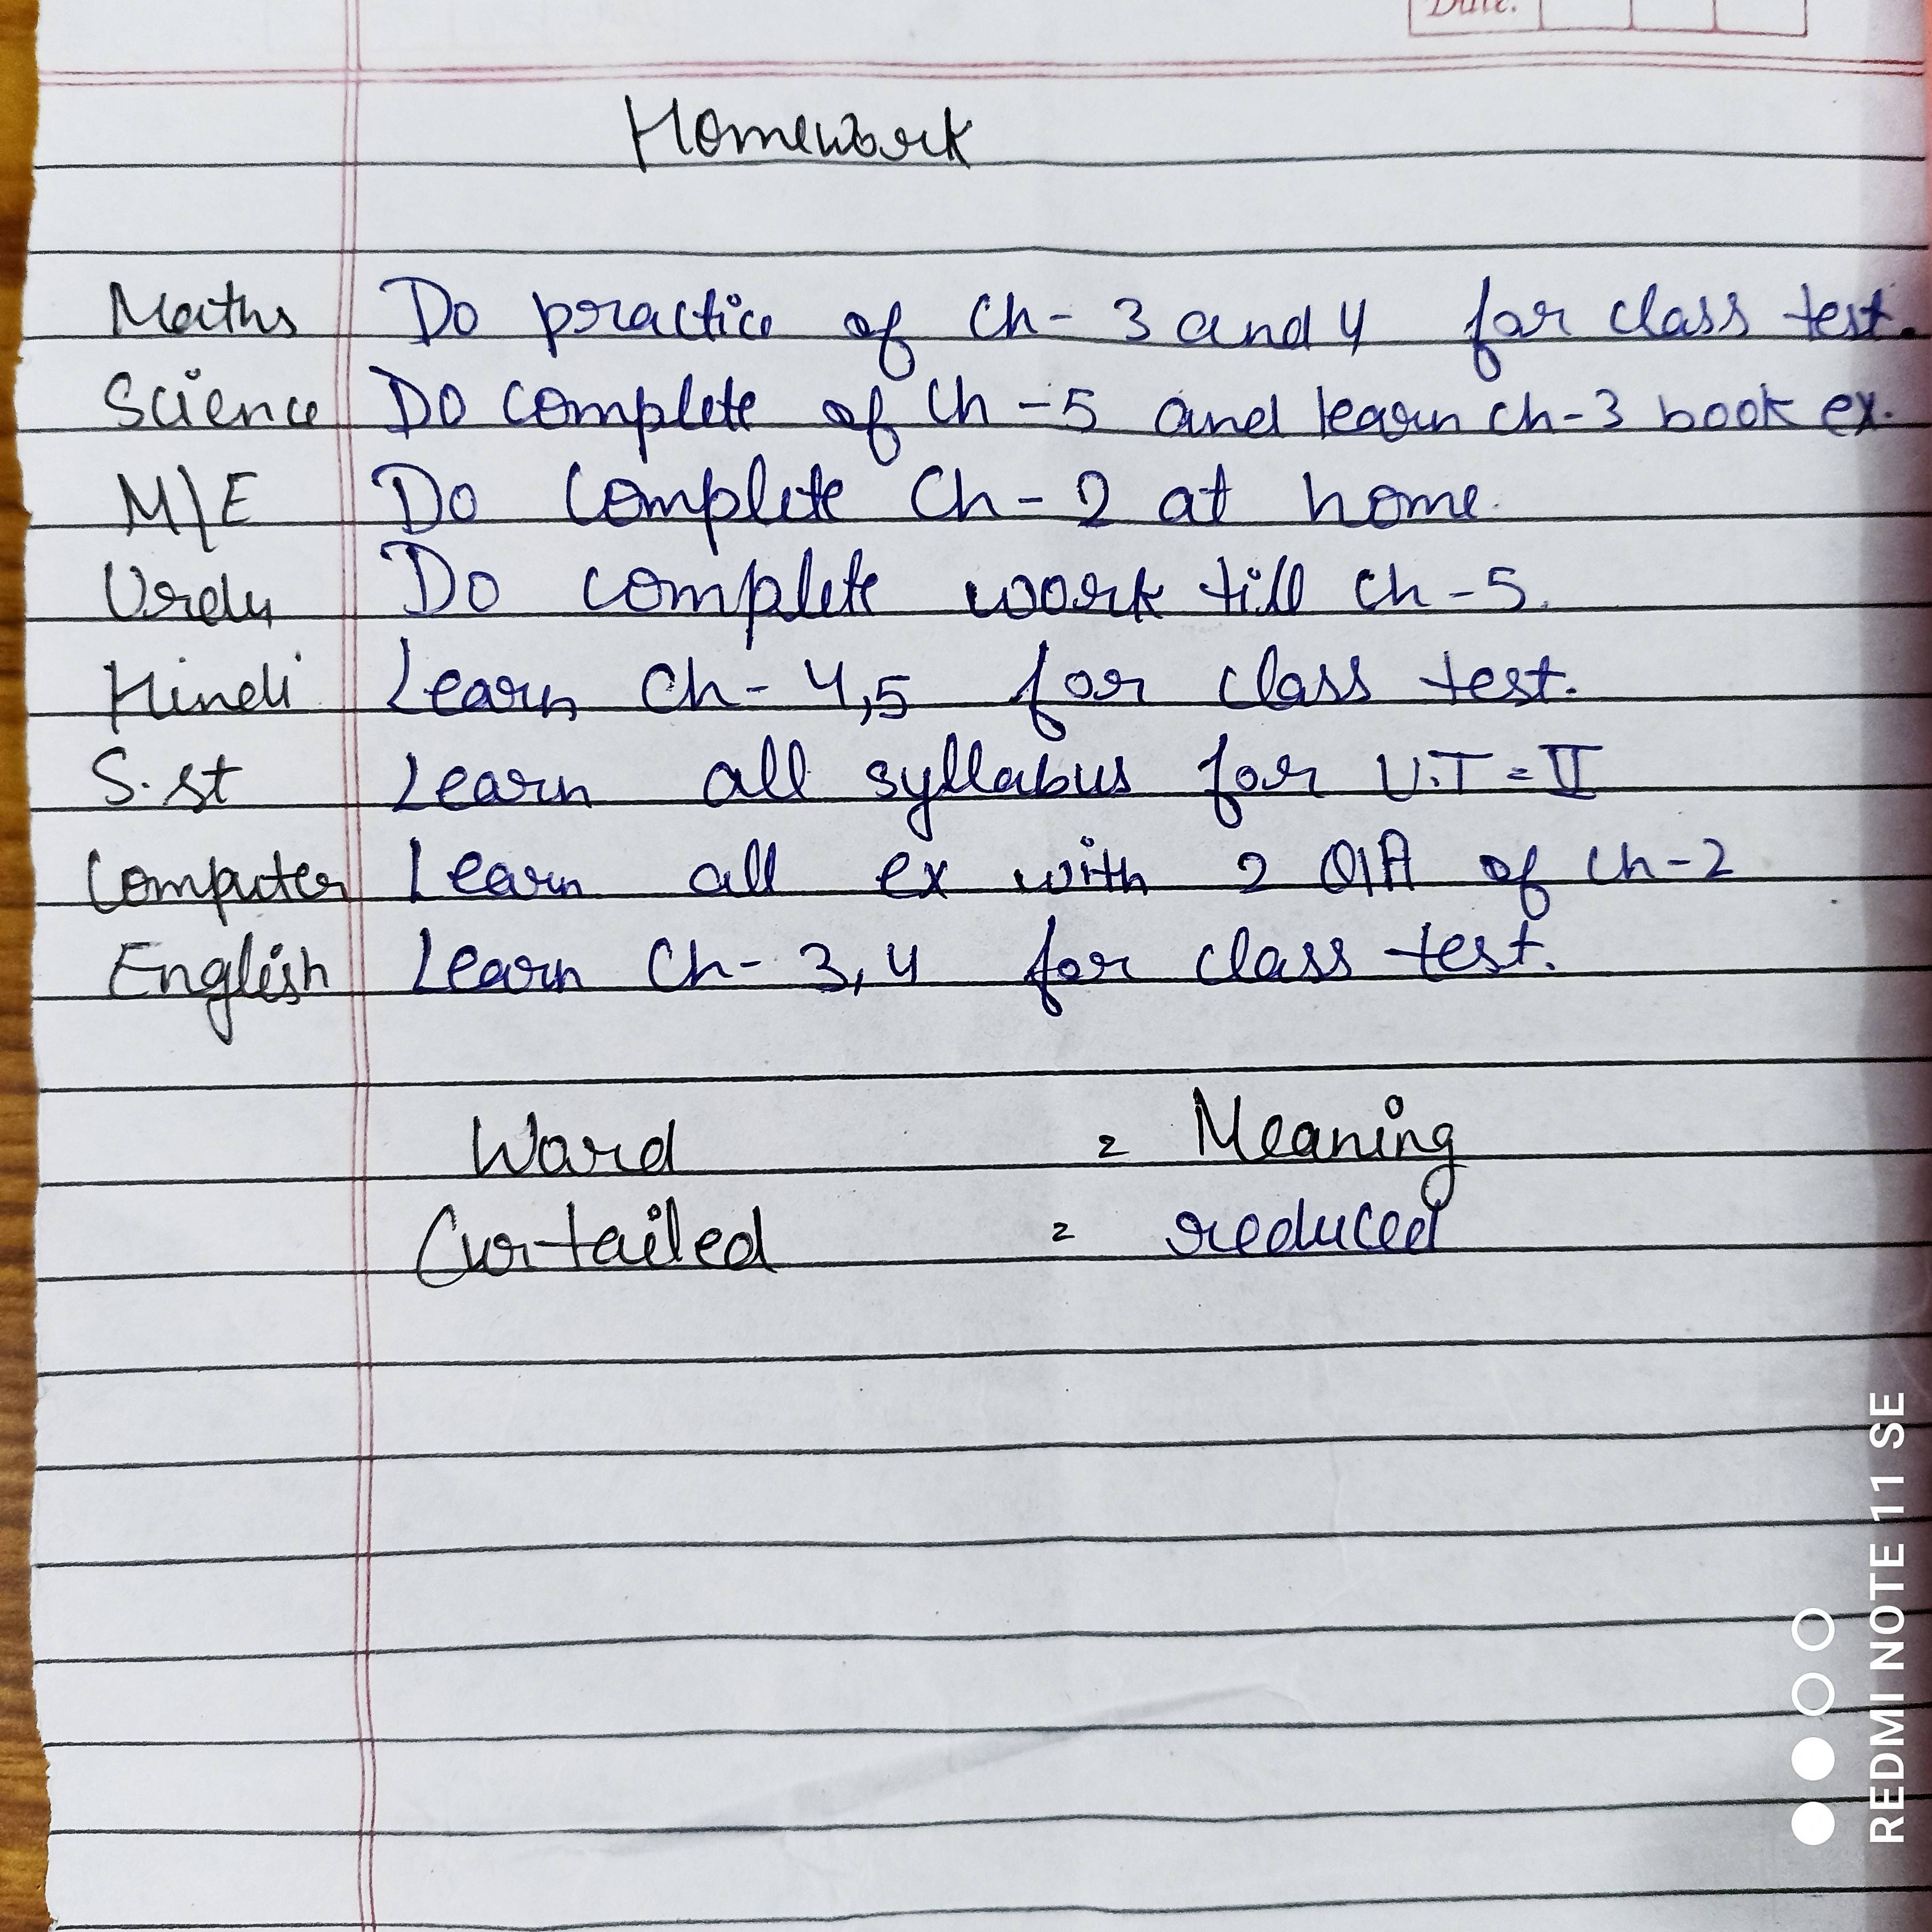 Date:
Homework
Maths Do practice of Ch- 3 and 4 for class test.
Science Do complete of Ch -5 and learn ch-3 book ex.
M\E Do Complete Ch - 2 at home.
Urdu Do complete work till ch -5.
Hindi Learn Ch- 4,5 for class test.
S.st Learn all syllabus for U.T = II
Computer Learn all ex with 2 Q\A of ch-2
English Learn Ch- 3,4 for class test.
Word = Meaning
Curtailed = reduced
REDMI NOTE 11 SE